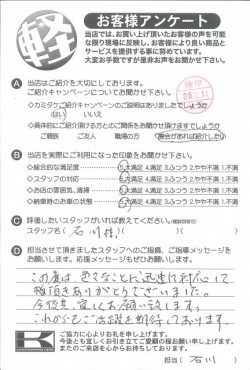 軽
お客様アンケート
当店では、お買い上げ頂いたお客様の声を可能な
限り現場に反映し、お客様により良い商品と
サービスを提供する事に努めています。
大変お手数ですが是非お声をお聞かせ下さい。
A 当店はご紹介を大切にしております。
ご紹介キャンペーンについてお聞かせ下さい。
◇カミタケご紹介キャンペーンのご説明はありましたでしょうか
はい いいえ
◇具体的にご紹介頂ける方とのご関係をお聞かせ頂けますでしょうか
ご親族 ご友人 職場の方 機会があれば紹介したい
B 当店を実際にご利用になった印象をお聞かせ下さい。
◇総合的な満足度 5.大満足 4.満足 3.ふつう 2.やや不満 1.不満
◇スタッフの対応 5.大満足 4.満足 3.ふつう 2.やや不満 1.不満
◇お店の雰囲気、清掃 5.大満足 4.満足 3.ふつう 2.やや不満 1.不満
◇納車時のお車の状態 5.大満足 4.満足 3.ふつう 2.やや不満 1.不満
C 評価したいスタッフがいれば教えてください。
スタッフ名( 石川 様)
D 担当させて頂きましたスタッフへのご指摘、ご指導メッセージを
お願いします。ご応援メッセージもお聞かせ下さい。
この度は、色々なことに迅速に対応して
頂きありがとうございました。
今後共、宜しくお願い致します。
これからもご活躍を期待しております。
K
ご協力に心よりお礼を申し上げます。
今後とも宜しくお引き立てご愛顧の程お願い申し上げます。
またのご来店を心からお待ちしております。
担当( 石川 )